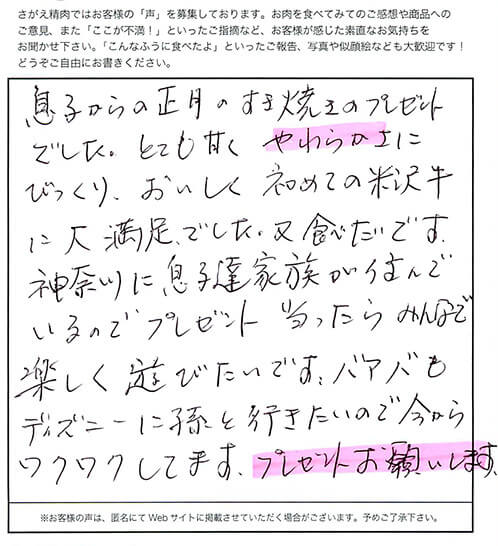 さがえ精肉ではお客様の「声」を募集しております。お肉を食べてみてのご感想や商品への
ご意見、また「ここが不満！」といったご指摘など、お客様が感じた素直なお気持ちを
お聞かせ下さい。「こんなふうに食べたよ」といったご報告、写真や似顔絵なども大歓迎です！
どうぞご自由にお書きください。
息子からの正月のすき焼きのプレゼント
でした。とても甘く やわらかさに
びっくり、おいしく 初めての米沢牛
に大満足、でした。又食べたいです。
神奈川に息子達家族が住んで
いるので プレゼント 当ったら みんなで
楽しく 遊びたいです。バアバも
ディズニーに孫と行きたいので今から
ワクワクしてます、プレゼントお願いします。
※お客様の声は、匿名にてWebサイトに掲載させていただく場合がございます。予めご了承下さい。